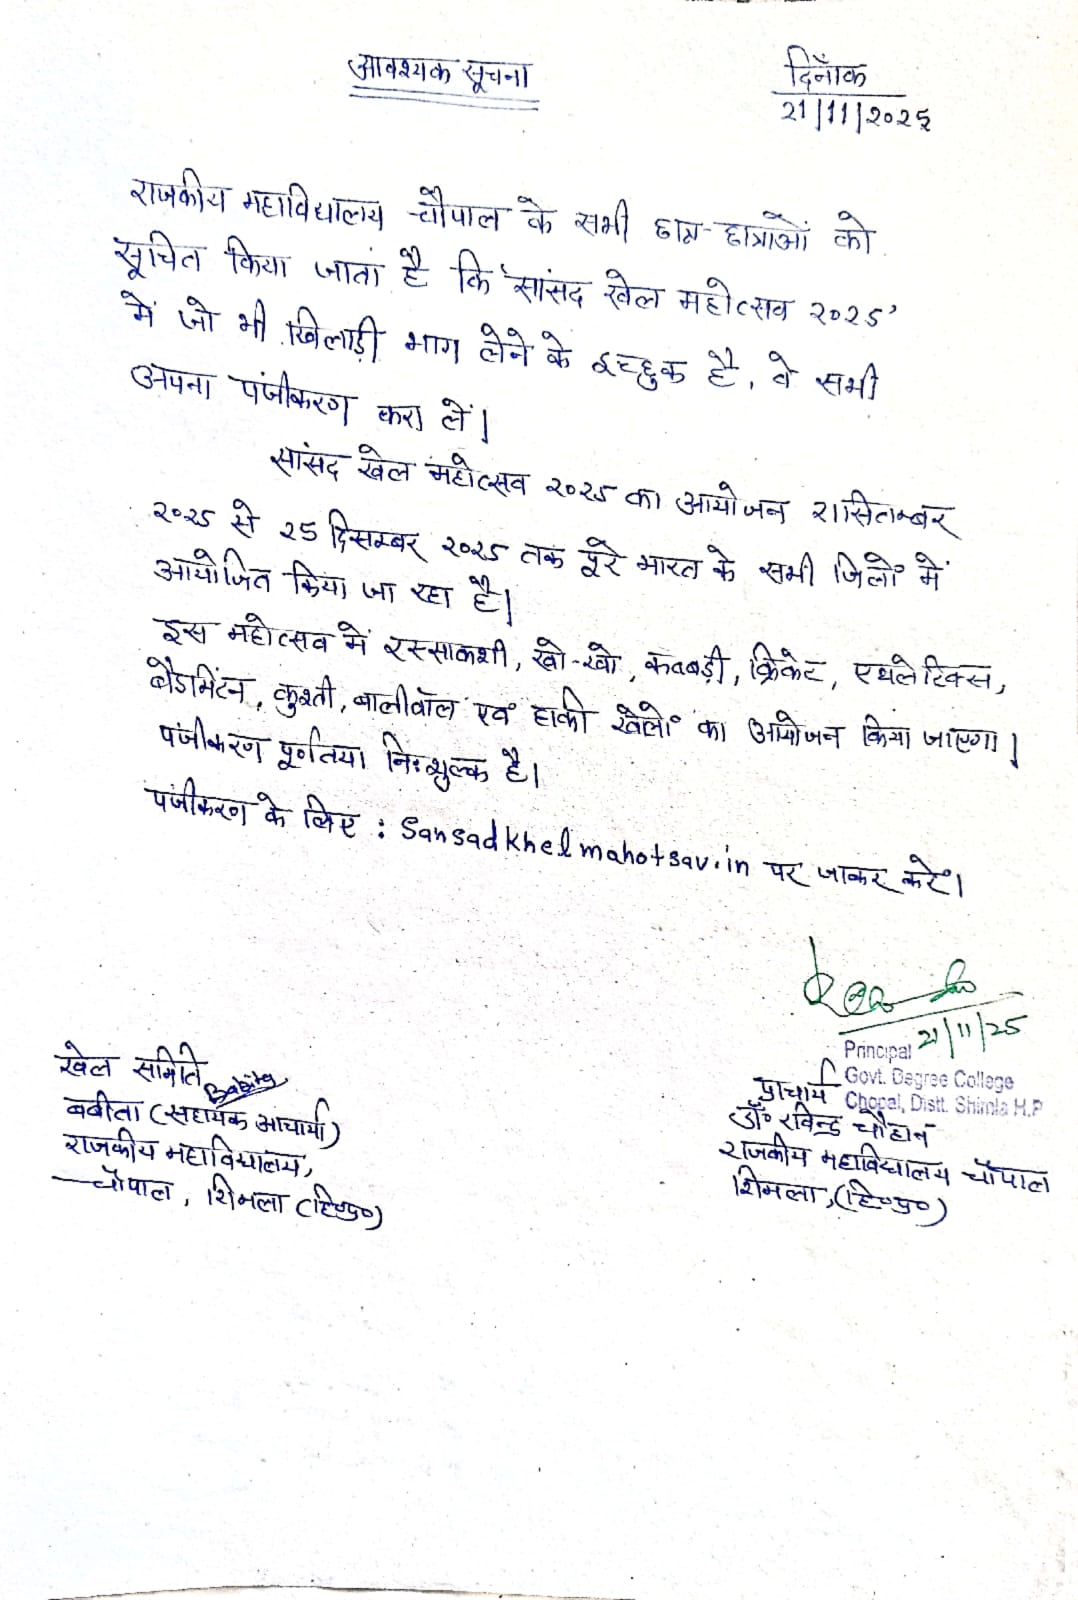 आवश्यक सूचना
दिनाँक
21/11/२०२५
राजकीय महाविद्यालय चौपाल के सभी छात्र-छात्राओं को
सूचित किया जाता है कि 'सांसद खेल महोत्सव २०२५'
में जो भी खिलाड़ी भाग लेने के इच्छुक है, वे सभी
अपना पंजीकरण करा लें।
सांसद खेल महोत्सव २०२५ का आयोजन २१सितम्बर
२०२५ से २५ दिसम्बर २०२५ तक पूरे भारत के सभी जिलों में
आयोजित किया जा रहा है।
इस महोत्सव में रस्साकशी, खो-खो, कबड्डी, क्रिकेट, एथलेटिक्स,
बैडमिंटन, कुश्ती, वालीवॉल एवं हाकी खेलों का आयोजन किया जाएगा।
पंजीकरण पूर्णतया निःशुल्क है।
पंजीकरण के लिए : Sansadkhelmahotsav.in पर जाकर करें।
21/11/25
Principal
Govt. Degree College
Chopal, Distt. Shimla H.P
खेल समिति
Babita
बबीता (सहायक आचार्या)
राजकीय महाविद्यालय,
चौपाल, शिमला (हि०प्र०)
प्राचार्य
डॉ० रविन्द्र चौहान
राजकीय महाविद्यालय चौपाल
शिमला, (हि०प्र०)